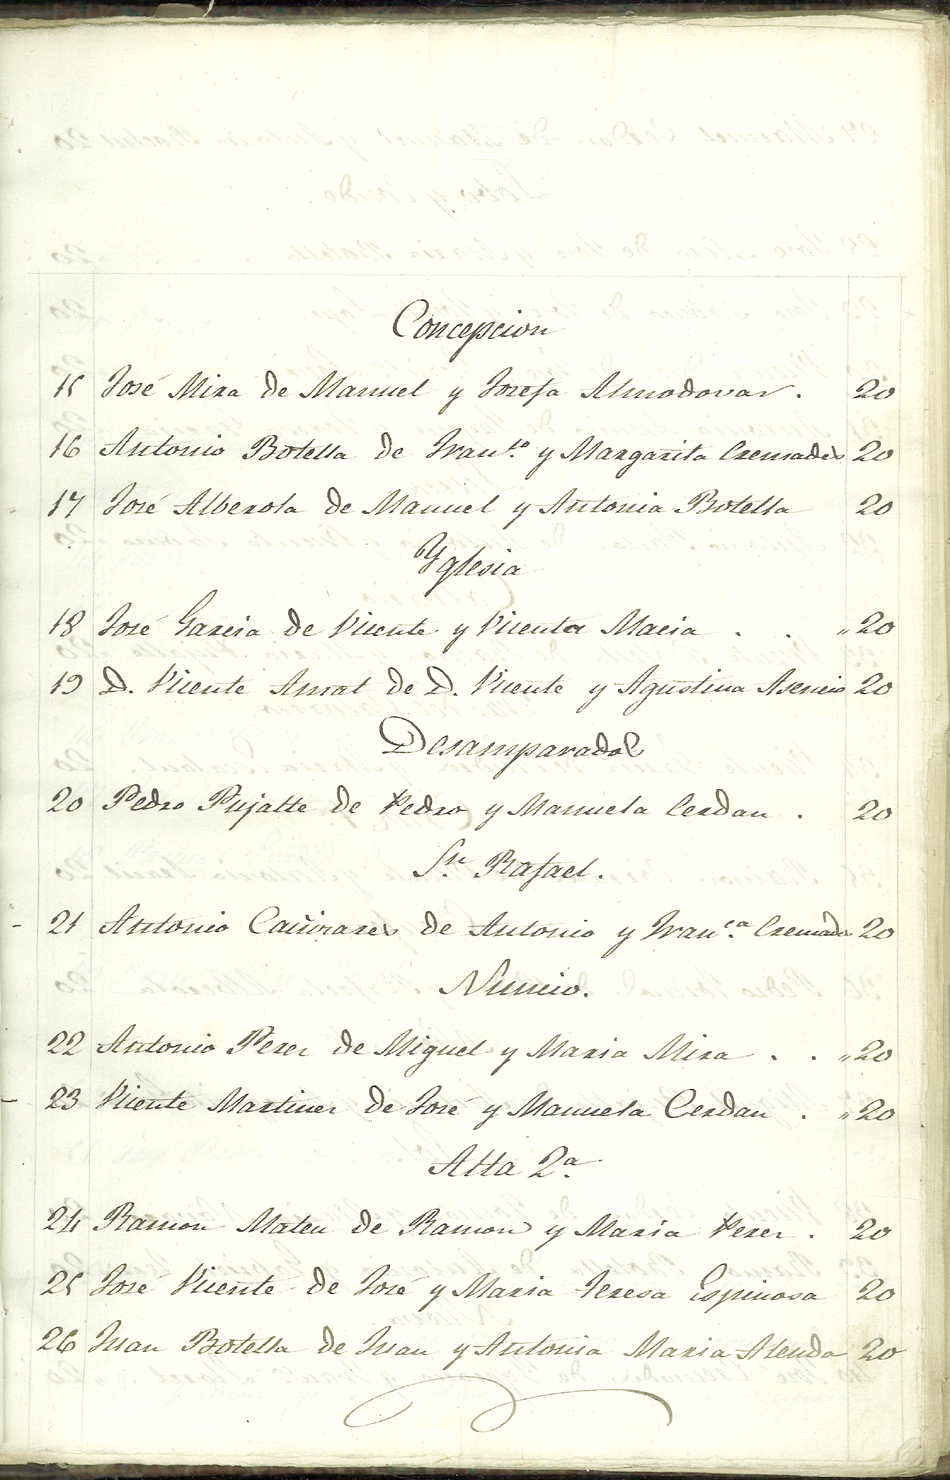 Concepcion
15 José Mira de Manuel y Josefa Almodovar . 20
16 Antonio Botella de Fran.co y Margarita Cremades 20
17 José Alberola de Manuel y Antonia Botella 20
Yglesia
18 José Garcia de Vicente y Vicenta Macia . . " 20
19 D. Vicente Amat de D. Vicente y Agustina Asencio 20
Desamparados
20 Pedro Pujalte de Pedro y Manuela Cerdan . 20
Sn. Rafael.
- 21 Antonio Cañizares de Antonio y Fran.ca Cremades 20
Nuncio.
22 Antonio Perez de Miguel y Maria Mira . . " 20
- 23 Vicente Martinez de José y Manuela Cerdan . " 20
Alta 2.a
24 Ramon Mateu de Ramon y Maria Perez . 20
25 José Vicente de José y Maria Teresa Espinosa 20
26 Juan Botella de Juan y Antonia Maria Alenda 20